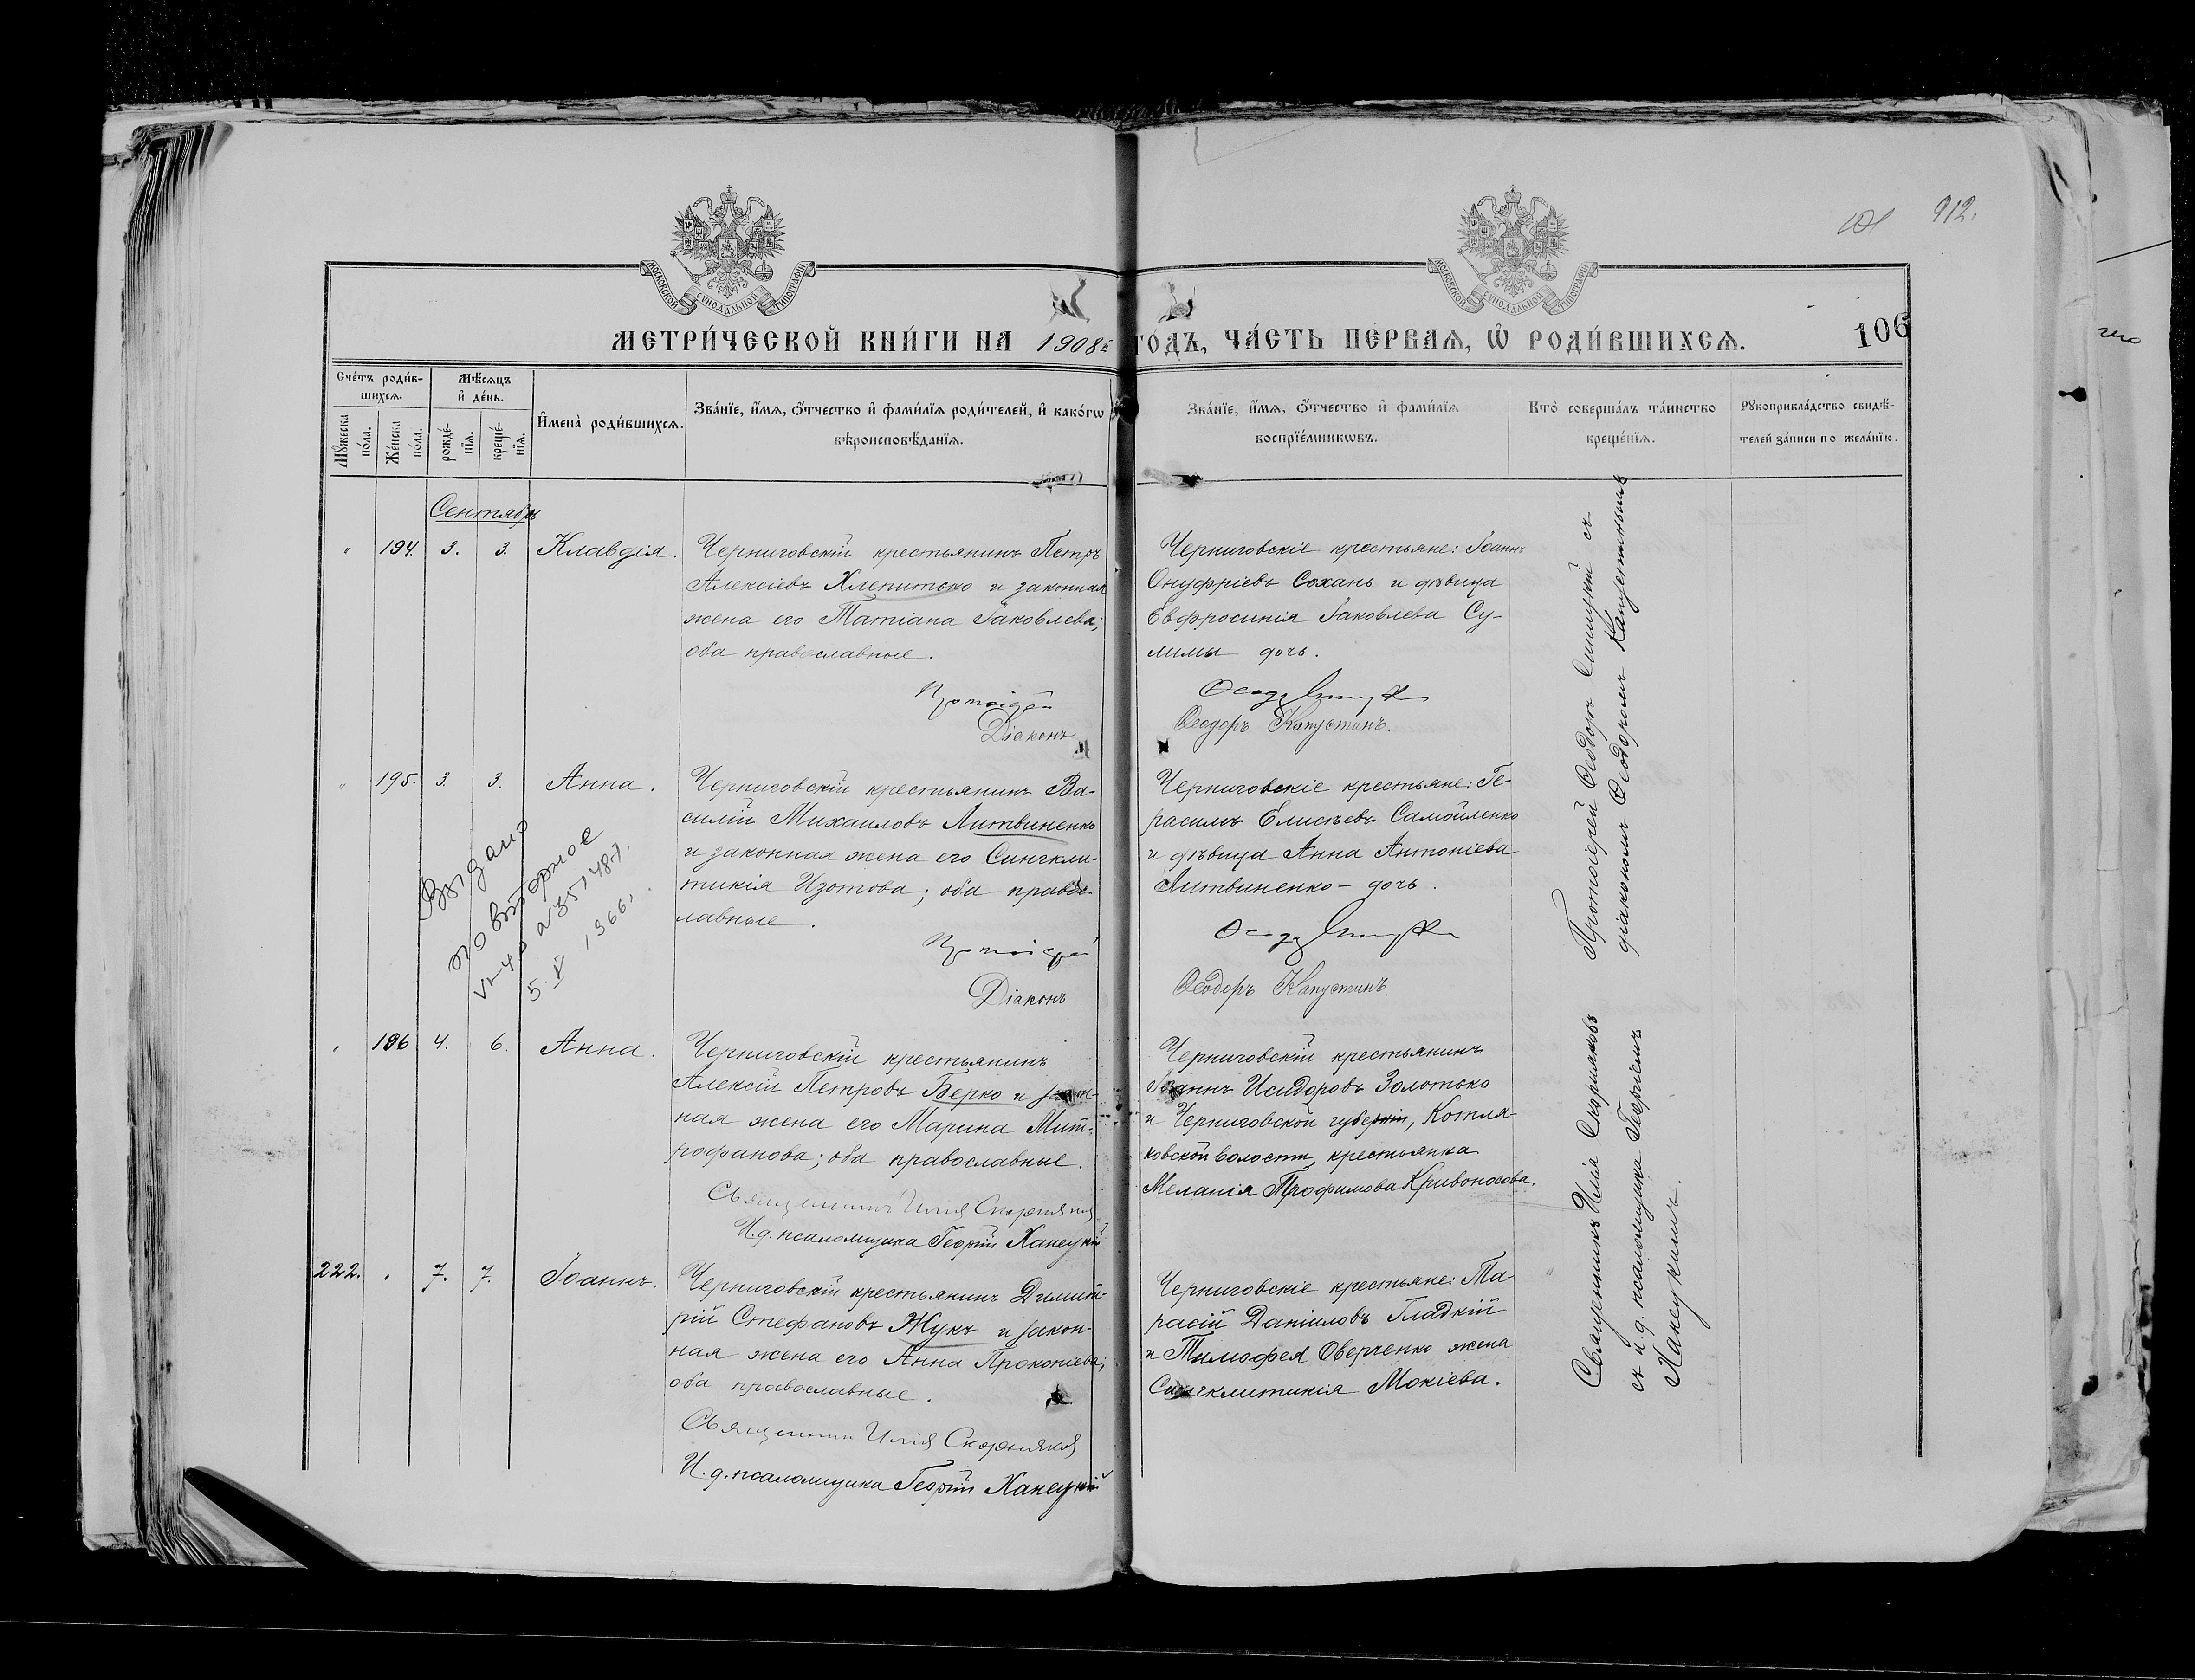 912.
МОСКОВСКОЙ СѴНОДАЛЬНОЙ ТИПОГРАФІИ
МОСКОВСКОЙ СѴНОДАЛЬНОЙ ТИПОГРАФІИ
МЕТРИ́ЧЕСКОЙ КНИ́ГИ НА 1908й ГО́ДЪ, ЧА́СТЬ ПЕ́РВАѦ, Ѽ РОДИ́ВШИХСѦ.
106
Сче́тъ роди́в-
шихсѧ.
Мꙋжеска по́ла.
Же́нска по́ла.
Мѣ́сѧцъ
и҆ де́нь.
рожде́-
нїѧ.
креще́-
нїѧ.
И҆мена̀ роди́вшихсѧ.
Зва́нїе, и҆́мѧ, ѻ҆́тчество и҆ фами́лїѧ роди́телей, и҆ како́гѡ
вѣроисповѣ́данїѧ.
Зва́нїе, и҆́мѧ, ѻ҆́тчество и҆ фами́лїѧ
воспрїе́мникѡвъ.
Кто̀ соверша́лъ та́инство
креще́нїѧ.
Рꙋкоприкла́дство свидѣ́-
телей за́писи по жела́нїю.
Сентябрь
" 194. 3. 3. Клавдія.
Черниговскій крестьянинъ Петръ
Алексіевъ Хлепитько и законная
жена его Татіана Іаковлева;
оба православные.
Протоіерей
Діаконъ
Черниговскіе крестьяне: Іоаннъ
Онуфріевъ Сохань и дѣвица
Евфросинія Іаковлева Су-
лимы дочь.
Ѳеодоръ Капустинъ.
Протоіерей Ѳеодоръ Синицкій съ
діакономъ Ѳеодоромъ Капустинымъ
" 195. 3. 3. Анна.
Черниговскій крестьянинъ Ва-
силій Михаиловъ Литвиненко
и законная жена его Сингкли-
тикія Изотова; оба правос-
лавные.
Протоіерей
Діаконъ
Черниговскіе крестьяне: Ге-
расимъ Елисѣевъ Самойленко
и дѣвица Анна Антоніева
Литвиненко – дочь.
Ѳеодоръ Капустинъ.
Выдано
повторное
5. V 1966.
" 196 4. 6. Анна.
Черниговскій крестьянинъ
Алексій Петровъ Берко и закон-
ная жена его Марина Мит-
рофанова; оба православные.
Священникъ Илія Скорняковъ
И.д. псаломщика Георгій Ханецкій
Черниговскій крестьянинъ
Іоаннъ Исидоровъ Золотько
и Черниговской губерніи, Котля-
ковской волости, крестьянка
Меланія Трофимова Кривоносова.
Священникъ Илія Скорняковъ
съ и.д. псаломщика Георгіемъ
Ханецкимъ.
222. " 7. 7. Іоаннъ.
Черниговскій крестьянинъ Димит-
рій Стефановъ Жукъ и закон-
ная жена его Анна Прокопіева;
оба православные.
Священникъ Илія Скорняковъ
И.д. псаломщика Георгій Ханецкій
Черниговскіе крестьяне: Та-
расій Даніиловъ Гладкій
и Тимофея Оверченко жена
Сингклитикія Мокіева.